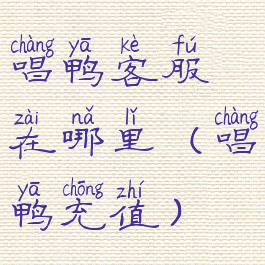 chàng yā kè fú
唱鸭客服
zài nǎ lǐ chàng
在哪里（唱
yā chōng zhí
鸭充值）